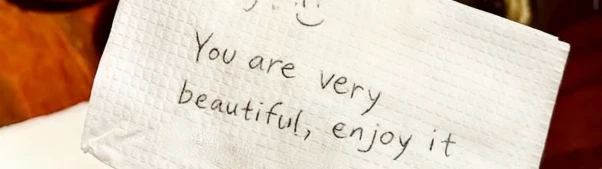 You are very
beautiful, enjoy it